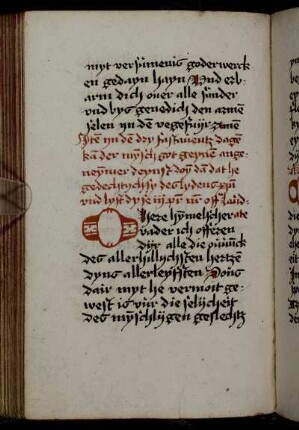 myt versümenis goderwerck
en gedayn hayn Vnd erb
arm dich ouer alle sunder
vnd bys genedich den armen
selen in dē vegefuyr Amē
Itē in dē dry fastauentz dagē
kā der mȳsch got geynē ange
neymer deynst doyn dā dat he
gedechtich sy des lydens
vnd lyst dyse
O here hymelscher
vader ich offeren
dyr alle die
des allerhillichsten hertzē
dyns allerleyfsten Sons
dair myt he verwoit ge
west is vur die selicheit
des mȳschlijgen geslechtz